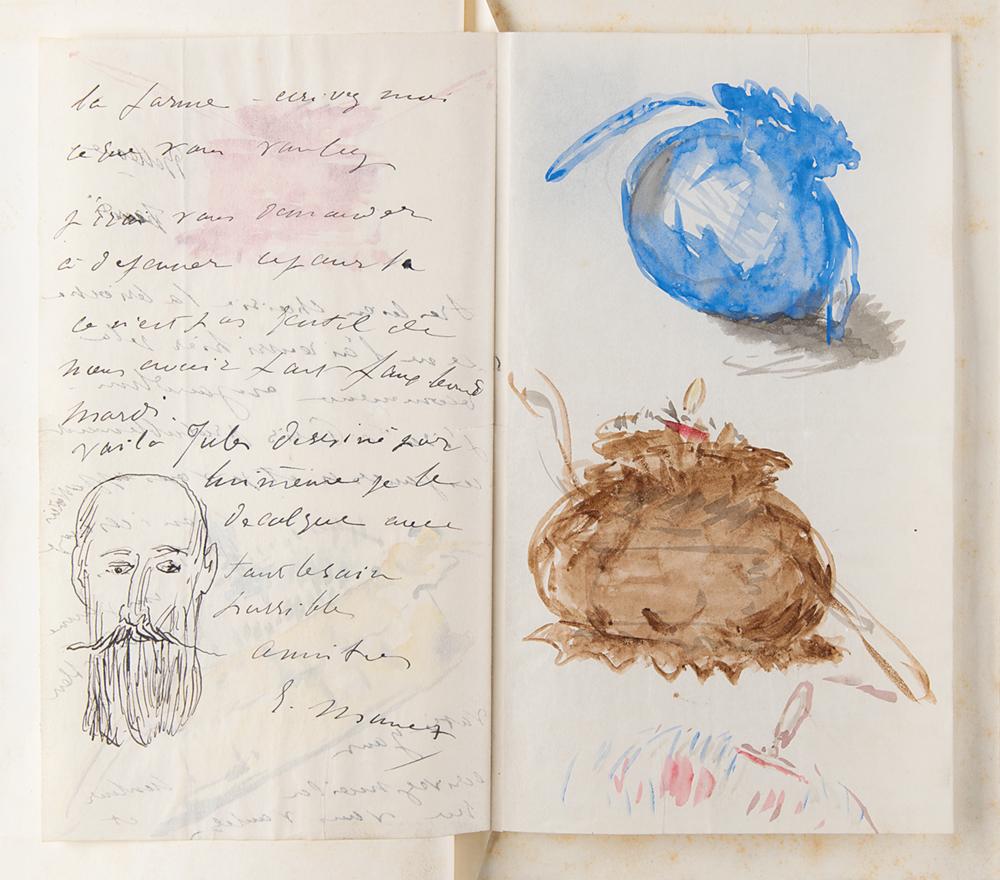 la forme - ecrivez moi
ce que vous voulez
j'irai vous demander
à dejeuner
ce n'est pas gentil de
nous avoir fait faux bond
mardi.
voila Jules dessiné par
lui même je le
decalque avec
tout le soin
possible
amities
E. Manet